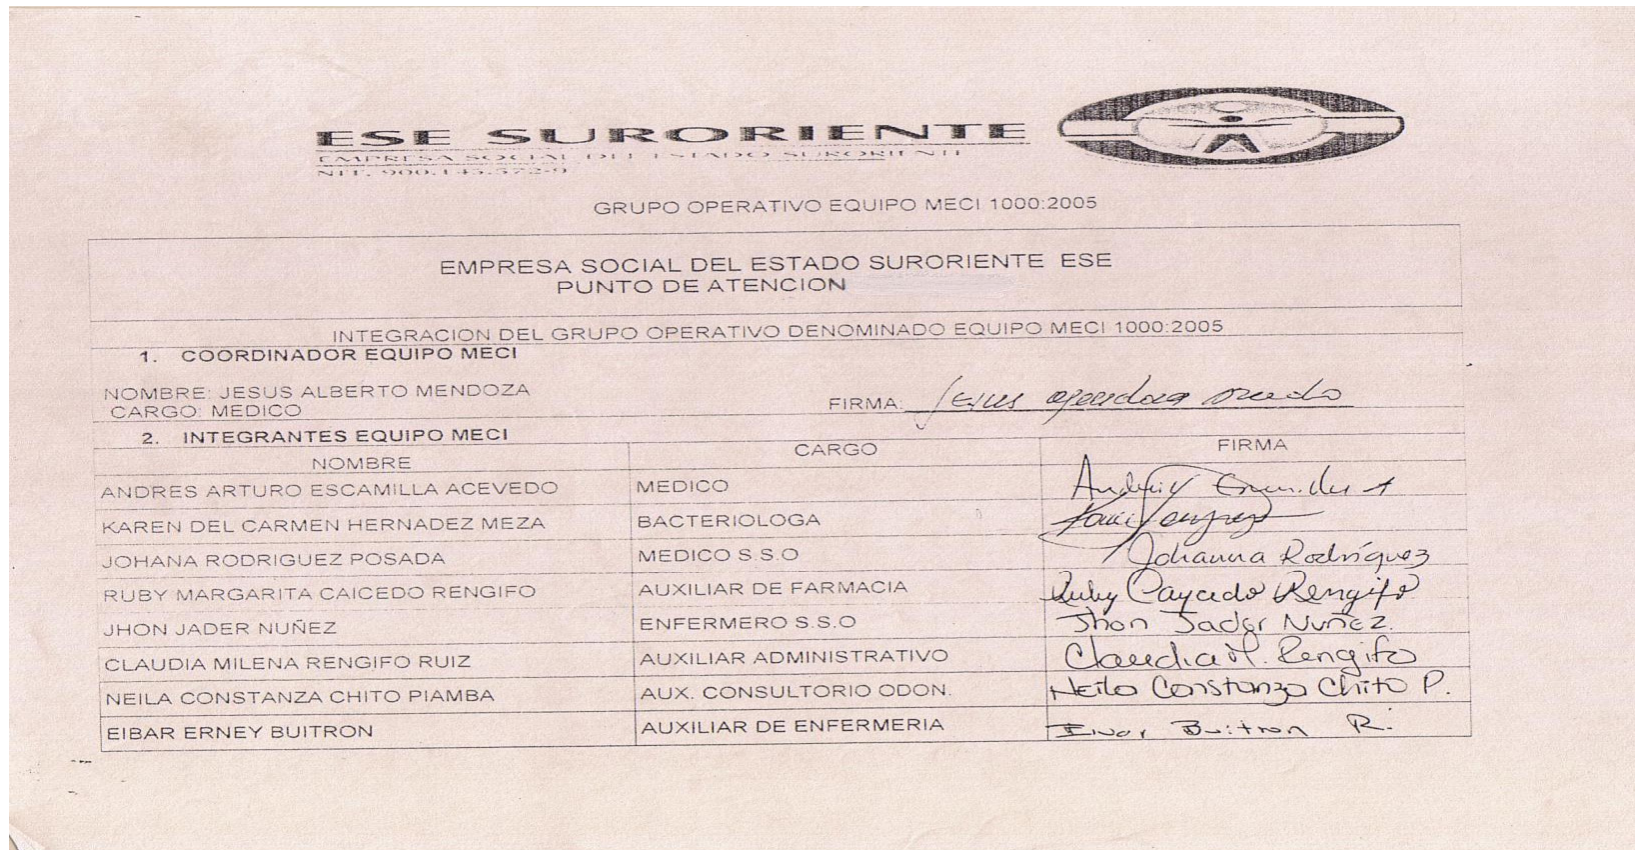 ESE SURORIENTE
EMPRESA SOCIAL DEL ESTADO SURORIENTE
NIT. 900.145.572-9
GRUPO OPERATIVO EQUIPO MECI 1000:2005
EMPRESA SOCIAL DEL ESTADO SURORIENTE ESE
PUNTO DE ATENCION
INTEGRACION DEL GRUPO OPERATIVO DENOMINADO EQUIPO MECI 1000:2005
1. COORDINADOR EQUIPO MECI
NOMBRE: JESUS ALBERTO MENDOZA
CARGO: MEDICO
FIRMA: Jesus
2. INTEGRANTES EQUIPO MECI
NOMBRE CARGO FIRMA
ANDRES ARTURO ESCAMILLA ACEVEDO MEDICO
KAREN DEL CARMEN HERNADEZ MEZA BACTERIOLOGA
JOHANA RODRIGUEZ POSADA MEDICO S.S.O Johanna Rodríguez
RUBY MARGARITA CAICEDO RENGIFO AUXILIAR DE FARMACIA Ruby Caycedo Rengifo
JHON JADER NUÑEZ ENFERMERO S.S.O Jhon Jader Nuñez.
CLAUDIA MILENA RENGIFO RUIZ AUXILIAR ADMINISTRATIVO Claudia M. Rengifo
NEILA CONSTANZA CHITO PIAMBA AUX. CONSULTORIO ODON. Neila Constanza Chito P.
EIBAR ERNEY BUITRON AUXILIAR DE ENFERMERIA Eivar Buitron R.